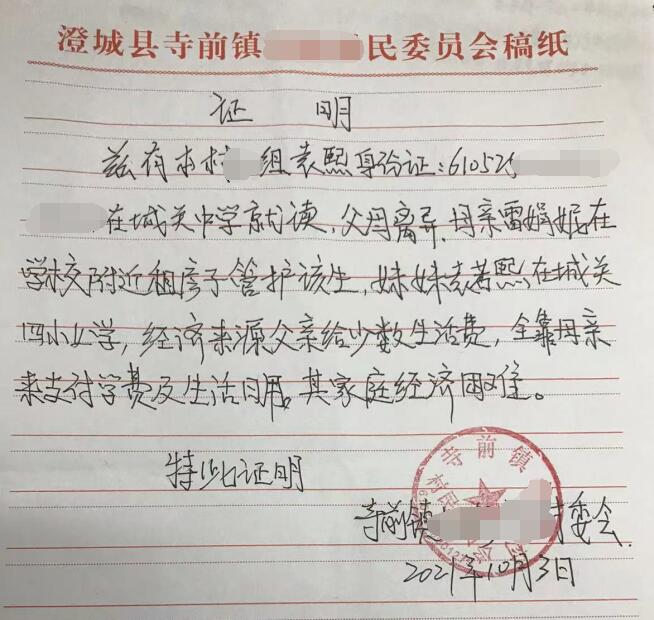 澄城县寺前镇民委员会稿纸
证 明
兹有本村组袁熙身份证:610525
在城关中学就读,父母离异,母亲雷娟娥在
学校附近租房子管护该生,妹妹袁若熙在城关
四小上学,经济来源父亲给少数生活费,全靠母亲
来支付学费及生活日用,其家庭经济困难。
特此证明
寺前镇村委会
2021年10月3日
寺前镇